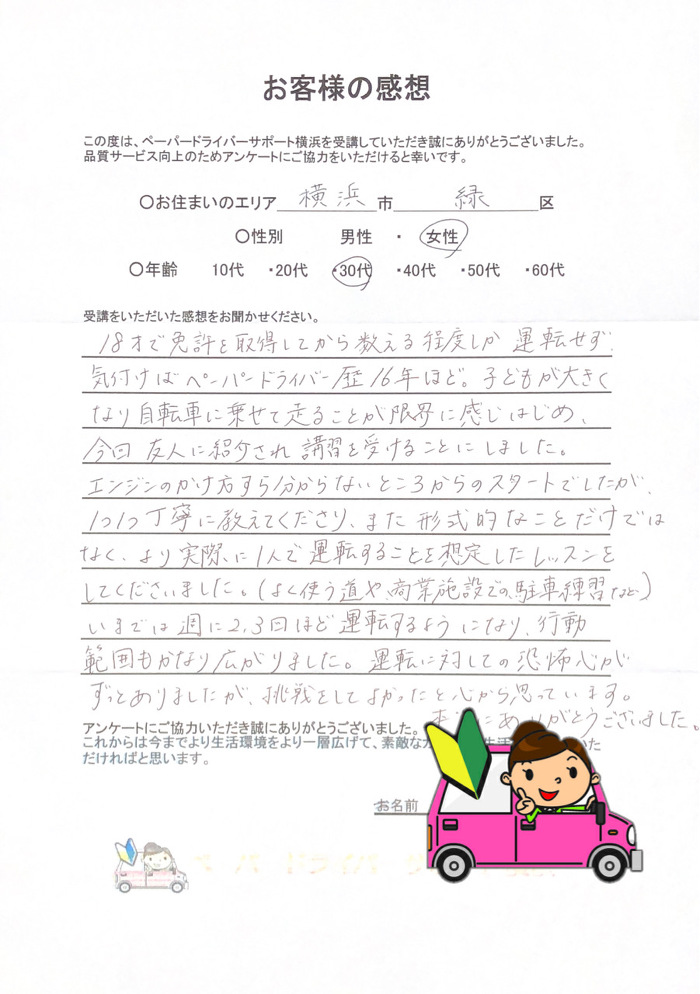 お客様の感想
この度は、ペーパードライバーサポート横浜を受講していただき誠にありがとうございました。
品質サービス向上のためアンケートにご協力をいただけると幸いです。
○お住まいのエリア 横浜 市 緑 区
○性別 男性 ・ 女性
○年齢 10代 ・20代 ・30代 ・40代 ・50代 ・60代
受講をいただいた感想をお聞かせください。
18才で免許を取得してから数える程度しか運転せず、
気付けばペーパードライバー歴16年ほど。子どもが大きく
なり自転車に乗せて走ることが限界に感じはじめ、
今回友人に紹介され講習を受けることにしました。
エンジンのかけ方すら分からないところからのスタートでしたが、
1つ1つ丁寧に教えてくださり、また形式的なことだけでは
なく、より実際に1人で運転することを想定したレッスンを
してくださいました。(よく使う道や、商業施設での駐車練習など)
いまでは週に2,3回ほど運転するようになり、行動
範囲もかなり広がりました。運転に対しての恐怖心が
ずっとありましたが、挑戦をしてよかったと心から思っています。
本当にありがとうございました。
アンケートにご協力いただき誠にありがとうございました。
これからは今までより生活環境をより一層広げて、素敵な
だければと思います。
お名前